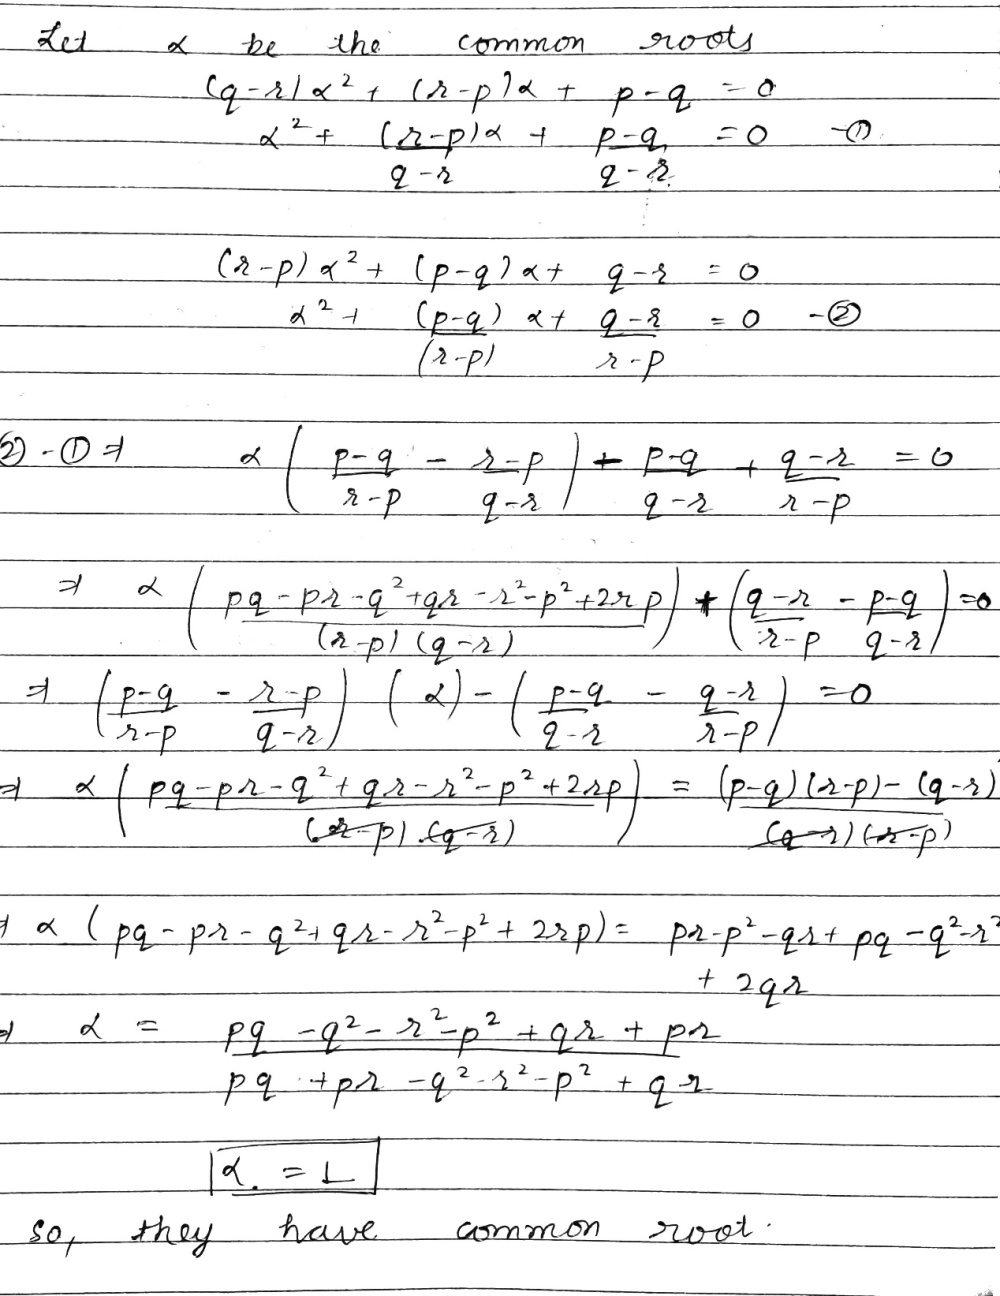 Let α be the common roots
(q-r)α² + (r-p)α + p-q = 0
α² + (r-p)α/(q-r) + (p-q)/(q-r) = 0 -①
(r-p)α² + (p-q)α + q-r = 0
α² + (p-q)/(r-p) α + (q-r)/(r-p) = 0 -②
②-① ⇒ α((p-q)/(r-p) - (r-p)/(q-r)) + (p-q)/(q-r) + (q-r)/(r-p) = 0
⇒ α((pq-pr-q²+qr-r²-p²+2rp)/((r-p)(q-r))) + ((q-r)/(r-p) - (p-q)/(q-r)) = 0
⇒ ((p-q)/(r-p) - (r-p)/(q-r)) (α) - ((p-q)/(q-r) - (q-r)/(r-p)) = 0
⇒ α((pq-pr-q²+qr-r²-p²+2rp)/((r-p).(q-r))) = ((p-q)(r-p)-(q-r)²)/((q-r)(r-p))
⇒ α(pq-pr-q²+qr-r²-p²+2rp) = pr-p²-qr+pq-q²-r²
+ 2qr
⇒ α = (pq-q²-r²-p²+qr+pr)/(pq+pr-q²-r²-p²+qr)
α. = 1
so, they have common root.